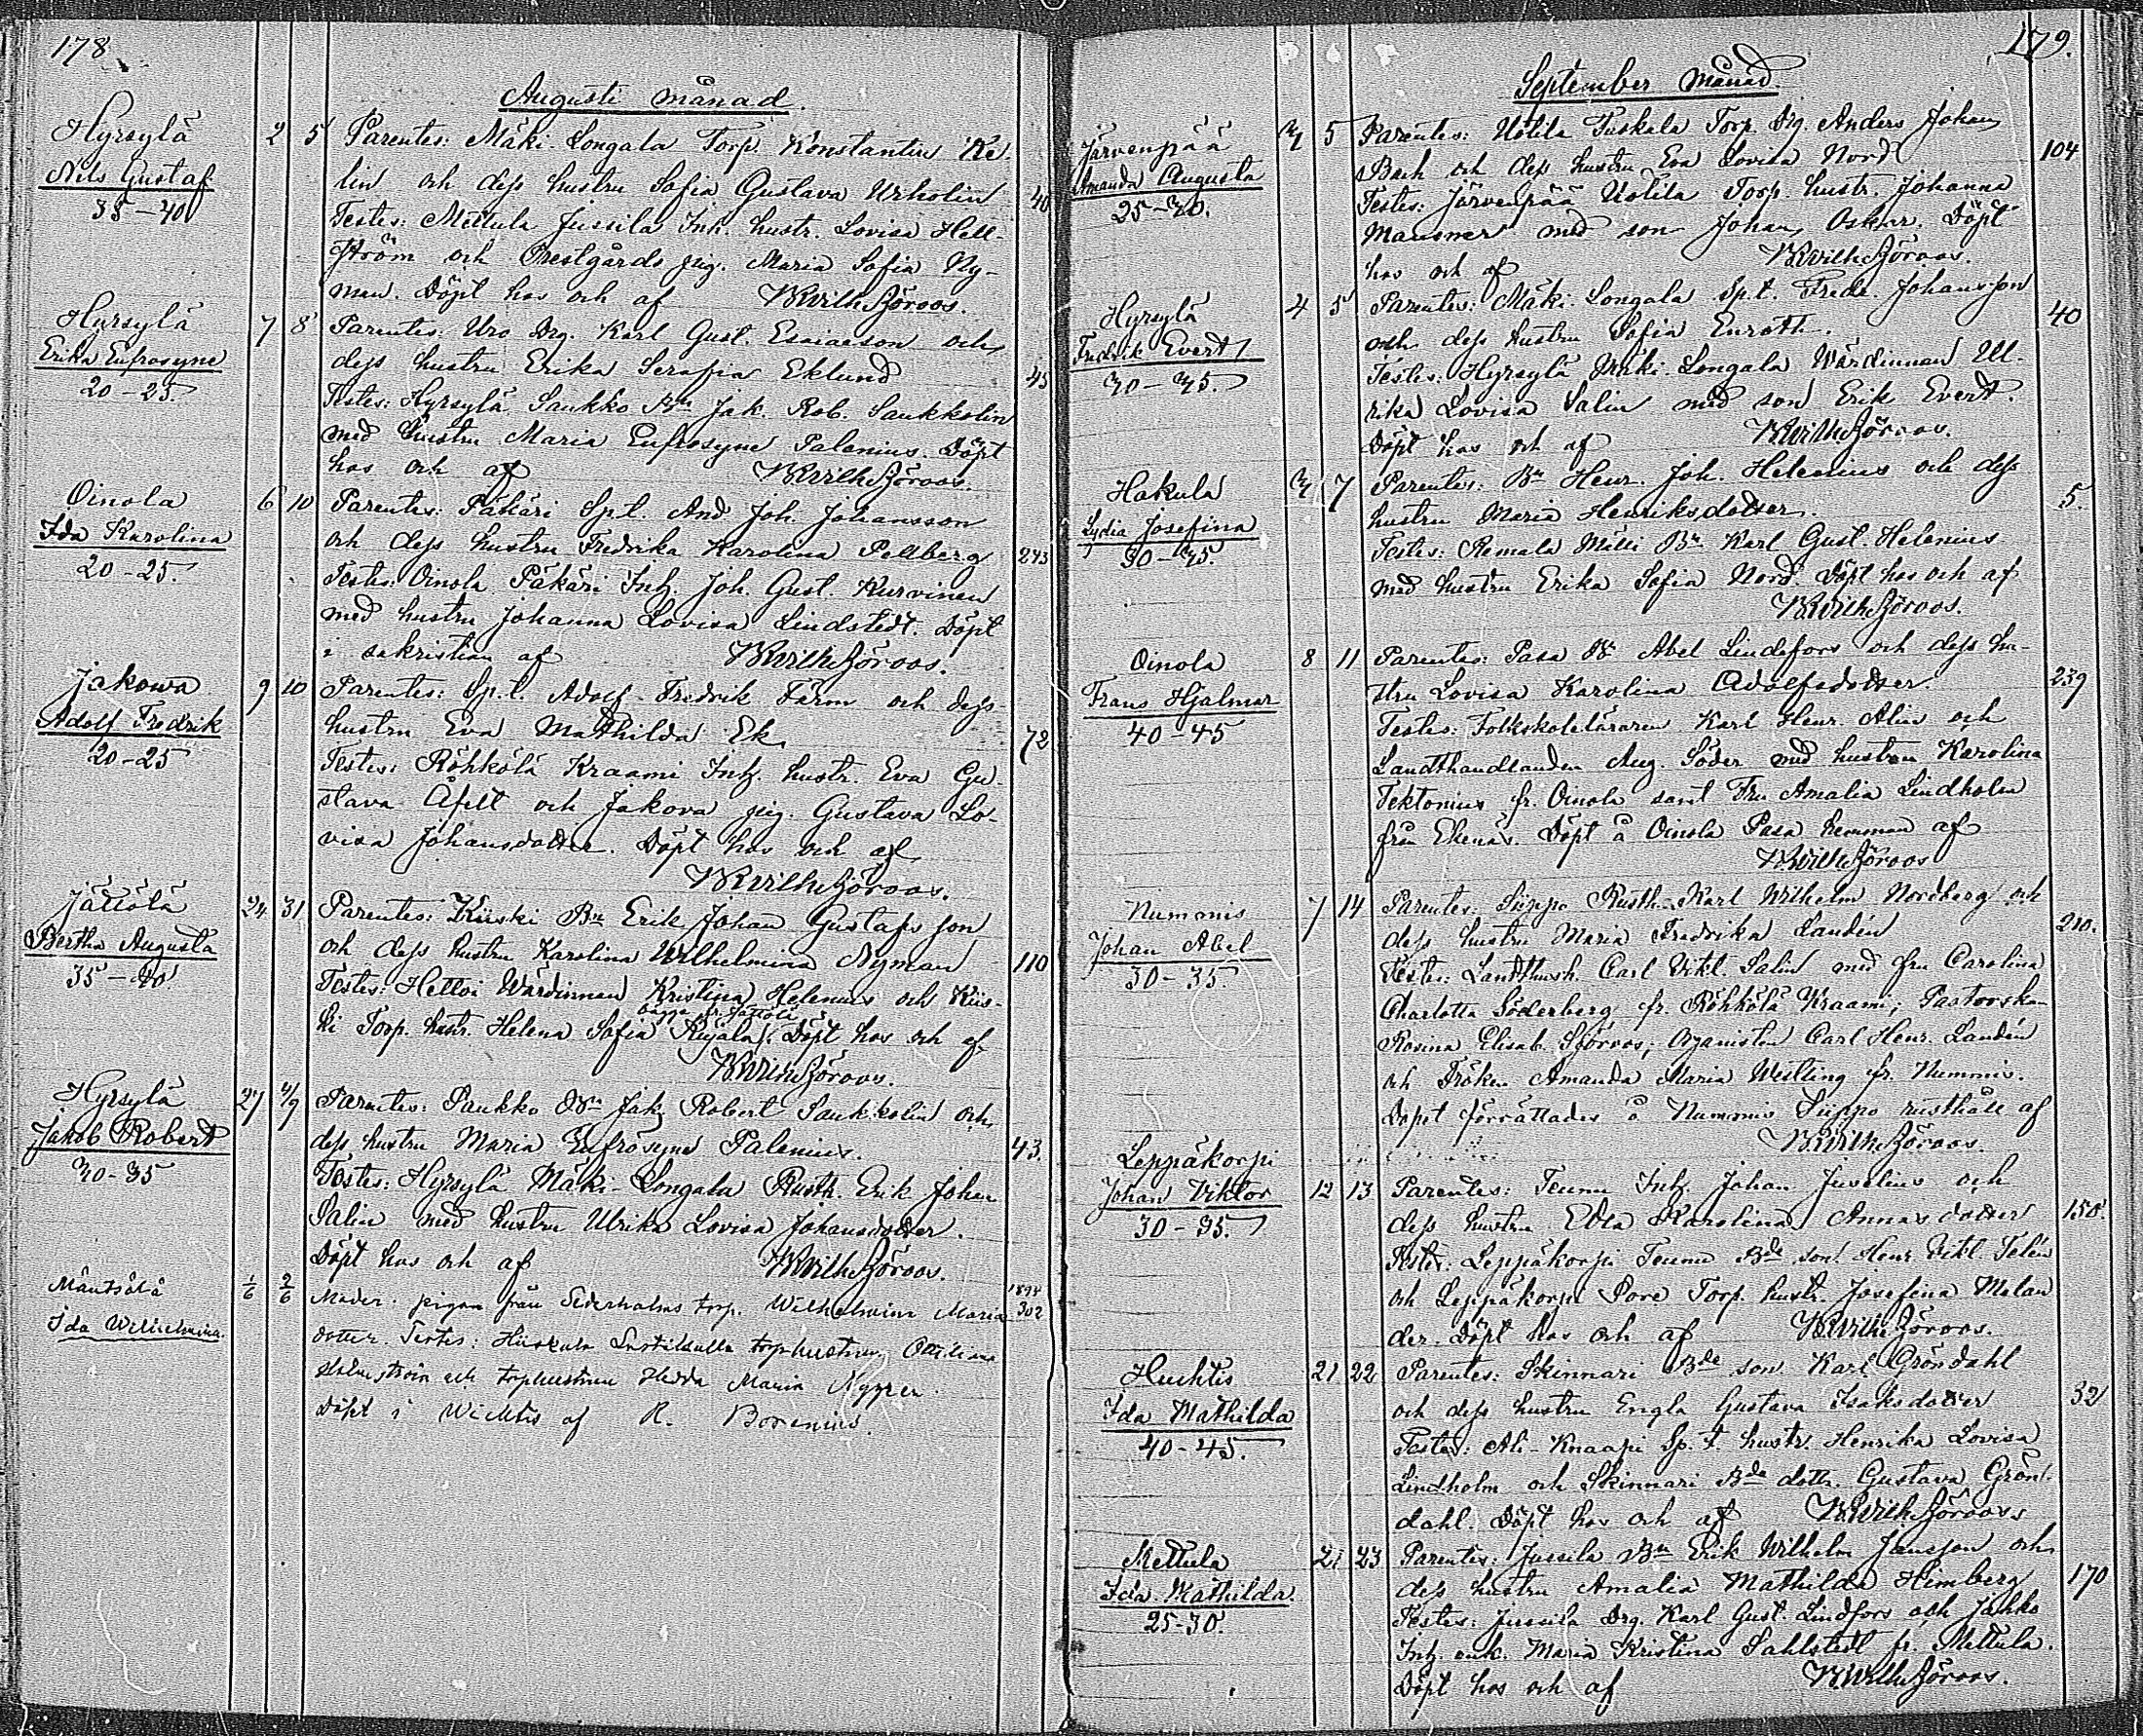 178
Augusti månad.
Hyrsylä 2 5 Parentes: Mäki-Longala Torp. Konstantin Ke-
Nils Gustaf lin och dess hustru Sofia Gustava Urholin 40
35-40 Testes: Mettula Jussila Inh. hustr. Lovisa Hell-
ström och Prestgårds pig. Maria Sofia Ny-
man. Döpt hos och af K Wilh Sjöroos.
Hyrsylä 7 8 Parentes: Uro Drg. Karl Gust. Esaiaeson och
Erika Eufrosyne dess hustru Erika Serafia Eklund 45
20-25. Testes: Hyrsylä Saukko Bn Jak. Rob. Saukkolin
med hustru Maria Eufrosyne Palenius. Döpt
hos och af K Wilh Sjöroos.
Oinola 6 10 Parentes: Päkäri Sp.t. And. Joh. Johansson
Ida Karolina och dess hustru Fredrika Karolina Pellberg 243
20-25. Testes: Oinola Päkäri Inh. Joh. Gust. Kurvinen
med hustru Johanna Lovisa Lindstedt. Döpt
i sakristian af K Wilh Sjöroos.
Jakowa 9 10 Parentes: Sp.t. Adolf Fredrik Färm och dess
Adolf Fredrik hustru Eva Mathilda Ek. 72
20-25 Testes: Röhkölä Kraami Inh. hustr. Eva Gu-
stava Åfelt och Jakova pig. Gustava Lo-
visa Johansdotter. Döpt hos och af
K Wilh Sjöroos.
Jättölä 24 31 Parentes: Kiiski Bn Erik Johan Gustafsson
Bertha Augusta och dess hustru Karolina Wilhelmina Nyman 110
35-40 Testes: Heltoi Wärdinnan Kristina Helenius och Kiis-
bägge fr. Jättölä
ki Torp. hustr. Helena Sofia Rejälä. Döpt hos och af
K Wilh Sjöroos.
Hyrsylä 27 4/9 Parentes: Saukko Bn Jak. Robert Saukkolin och
Jakob Robert dess hustru Maria Eufrosyne Palenius. 43.
30-35 Testes: Hyrsylä Mäki-Longala Rusth. Erik Johan
Salin med hustru Ulrika Lovisa Johansdotter.
Döpt hos och af K Wilh Sjöroos.
Mäntsälä 1/6 2/6 Moder: pigan från Sederholms torp. Wilhelmina Maria 1894 302
Ida Wilhelmina. dotter. Testes: Hiiskula torphustrun Ottiliana
Holmström och torphustrun Hedda Maria Nygren.
Döpt i Wichtis af R. Borenius.
179.
September månad
Järvenpää 5 Parentes: Uotila Tuskala Torp. Drg. Anders Johan
Amanda Augusta Back och dess hustru Eva Lovisa Nord 104
25-30. Testes: Järvenpää Uotila Torp. hustr. Johanna
Mausner med son Johan Oskar. Döpt
hos och af K Wilh Sjöroos.
Hyrsylä 4 5 Parentes: Mäki-Longala Sp.t. Fredr. Johansson 40
Fredrik Evert och dess hustru Sofia Enroth.
30-35. Testes: Hyrsylä Mäki-Longala Wärdinnan Ul-
rika Lovisa Salin med son Erik Evert.
Döpt hos och af K Wilh Sjöroos.
Hakula 7 Parentes: Bn Henr. Joh. Helenius och dess 5.
Lydia Josefina hustru Maria Henriksdotter.
30-35. Testes: Remala Mälli Bn Karl Gust. Helenius
med hustru Erika Sofia Nord. Döpt hos och af
K Wilh Sjöroos.
Oinola 8 11 Parentes: Pasa Bn Abel Lindefors och dess hu-
Frans Hjalmar stru Lovisa Karolina Adolfsdotter. 239
40-45 Testes: Folkskoleläraren Karl Henr. Alin och
Landthandlanden Aug. Söder med hustrun Karolina
Tektonius fr. Oinola samt Fru Amalia Lindholm
från Ekenäs. Döpt å Oinola Pasa hemman af
K Wilh Sjöroos
Nummis 7 14 Parentes: Siippo Rusth. Karl Wilhelm Nordberg och
Johan Abel dess hustru Maria Fredrika Landén 210.
30-35. Testes: Landthush. Carl Vikt. Salin med fru Carolina
Charlotta Söderberg fr. Röhkölä Kraami; Pastorskan
Rosina Elisab. Sjöroos; Organisten Carl Henr. Landén
och Fröken Amanda Maria Westling fr. Nummis.
Dopet förrättades å Nummis Siippo rusthåll af
K Wilh Sjöroos.
Leppäkorpi
Johan Viktor 12 13 Parentes: Teunu Inh. Johan Juselius och
30-35. dess hustru Edla Karolina Annasdotter 150.
Testes: Leppäkorpi Teunu Bde son Henr. Vikt. Telén
och Leppäkorpi Pore Torp. hustr. Josefina Melan-
der. Döpt hos och af K Wilh Sjöroos.
Huhtis 21 22 Parentes: Skinnari Bde son Karl Gröndahl
Ida Mathilda och dess hustru Engla Gustava Isaksdotter 32
40-45. Testes: Ali-Knaapi Sp.t. hustr. Henrika Lovisa
Lindholm och Skinnari Bde dottr. Gustava Grön-
dahl. Döpt hos och af K Wilh Sjöroos
Mettula 21 23 Parentes: Jussila Bn Erik Wilhelm Jansson och
Ida Mathilda. dess hustru Amalia Mathilda Himberg 170
25-30. Testes: Jussila Drg. Karl Gust. Lindfors och Jakko
Inh. enk. Maria Kristina Sahlstedt fr. Mettula.
Döpt hos och af K Wilh Sjöroos.